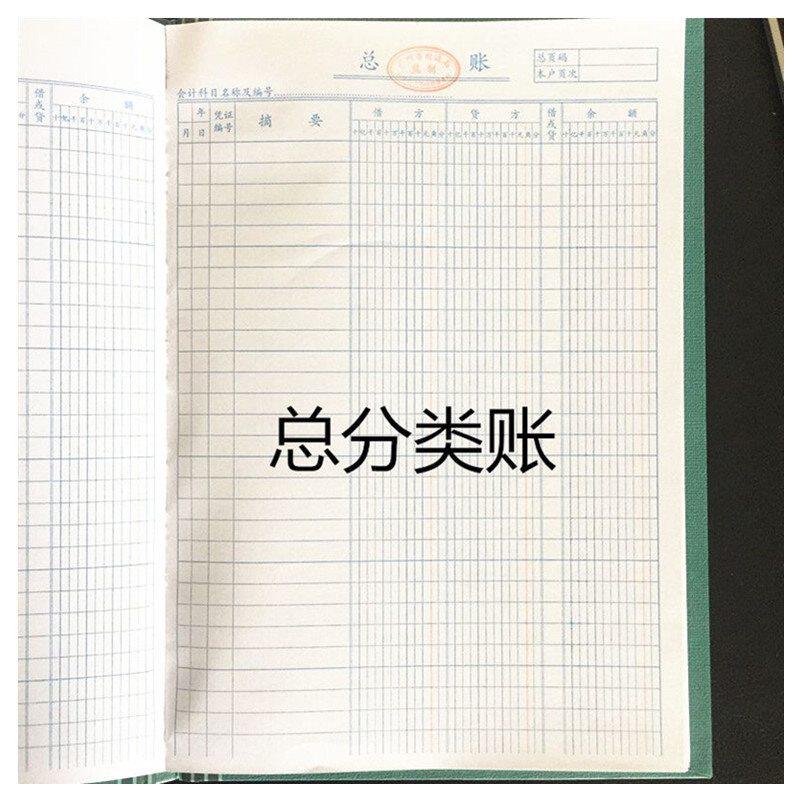 总 账
总页码
本户页次
会计科目名称及编号
借或贷 余 额
十亿千百十万千百十元角分
年 凭证编号 摘 要 借 方 贷 方 借或贷 余 额
月 日 十亿千百十万千百十元角分 十亿千百十万千百十元角分 十亿千百十万千百十元角分
总分类账